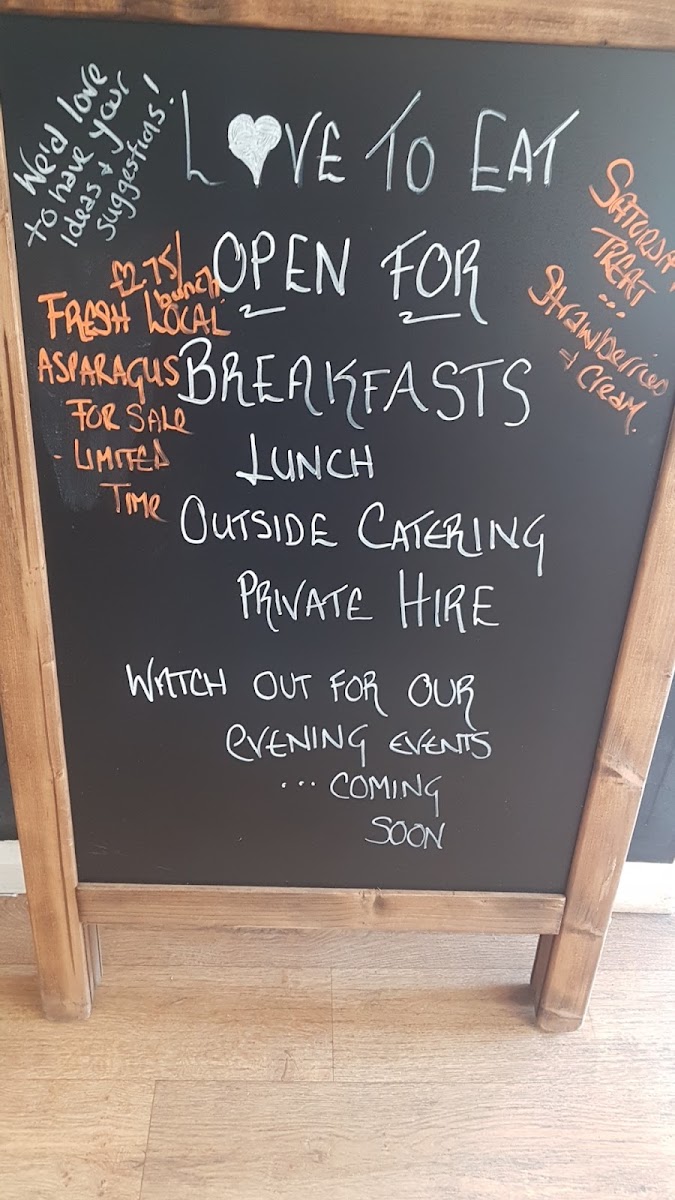 We'd love
to have your
ideas &
suggestions!
LOVE TO EAT
OPEN FOR
BREAKFASTS
LUNCH
OUTSIDE CATERING
PRIVATE HIRE
WATCH OUT FOR OUR
EVENING EVENTS
... COMING
SOON
£2.75/
bunch
FRESH LOCAL
ASPARAGUS
FOR SALE
- LIMITED
TIME
SATURDAY
TREAT
...
Strawberries
& Cream.